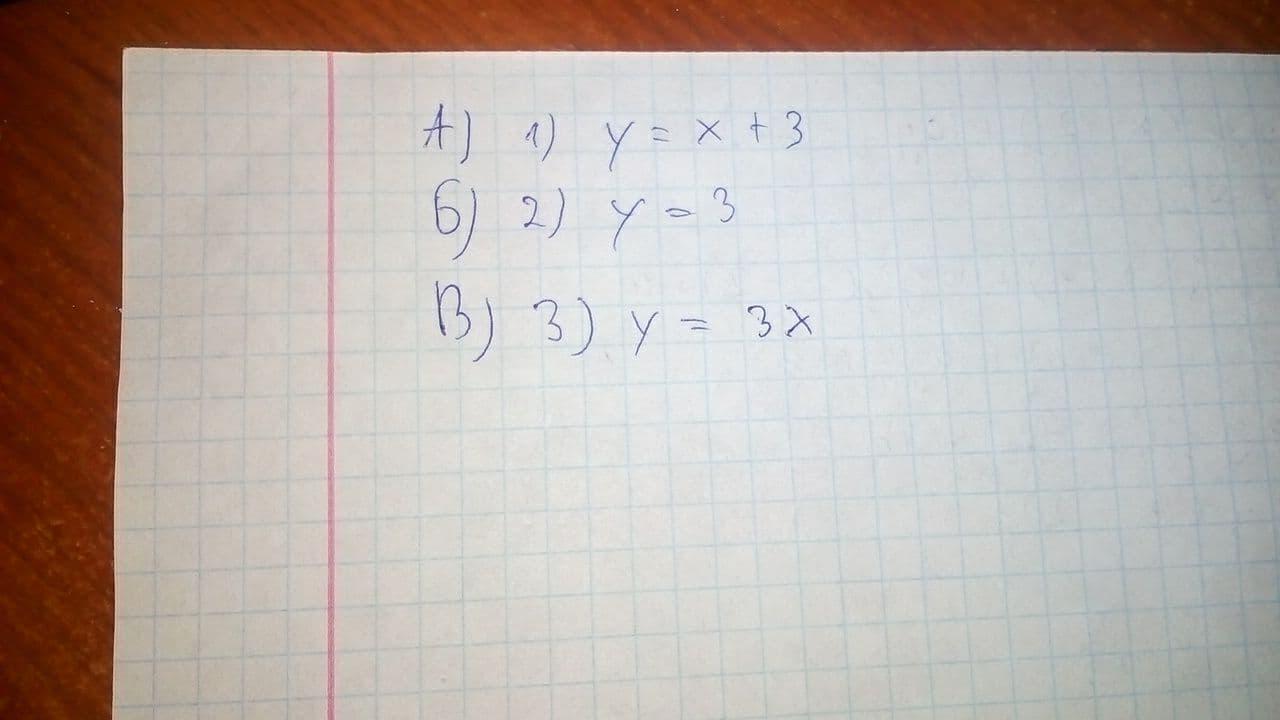 А) 1) y = x + 3
Б) 2) y = 3
В) 3) y = 3x